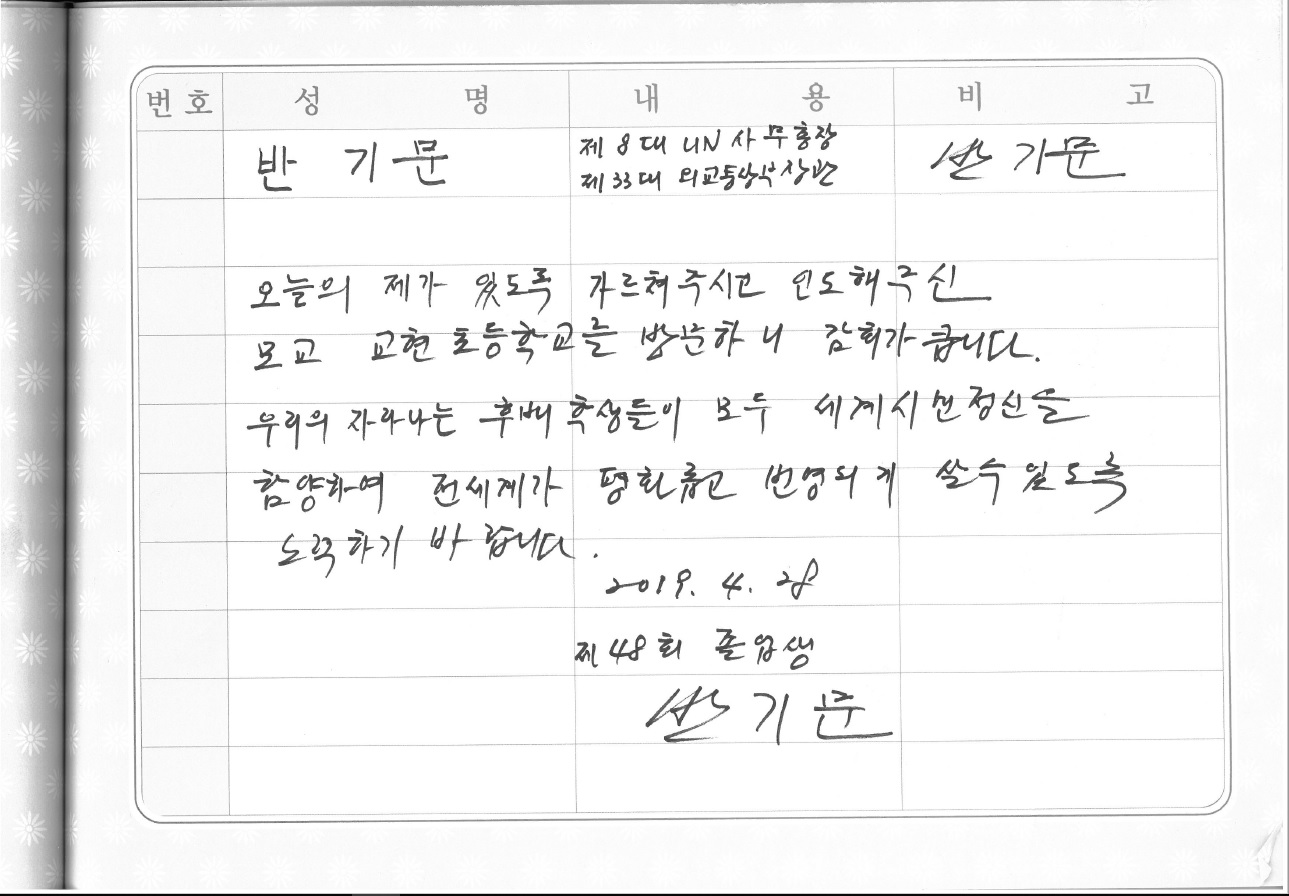 번호 성명 내용 비고
반 기 문 제 8대 UN 사무총장 반 기 문
제 33대 외교통상부장관
오늘의 제가 있도록 가르쳐주시고 인도해주신
모교 교현 초등학교를 방문하니 감회가 큽니다.
우리의 자라나는 후배 학생들이 모두 세계시민정신을
함양하여 전세계가 평화롭고 번영되게 살수 있도록
노력하기 바랍니다.
2019. 4. 28
제 48회 졸업생
반 기 문